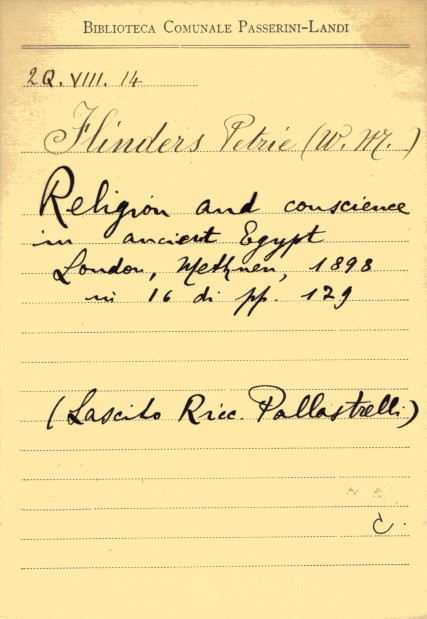 BIBLIOTECA COMUNALE PASSERINI-LANDI
2Q. VIII. 14
Flinders Petrie (W. M.)
Religion and conscience
in ancient Egypt
London, Methuen, 1898
in 16 di pp. 179
(Lascito Ricc. Pallastrelli)
C.